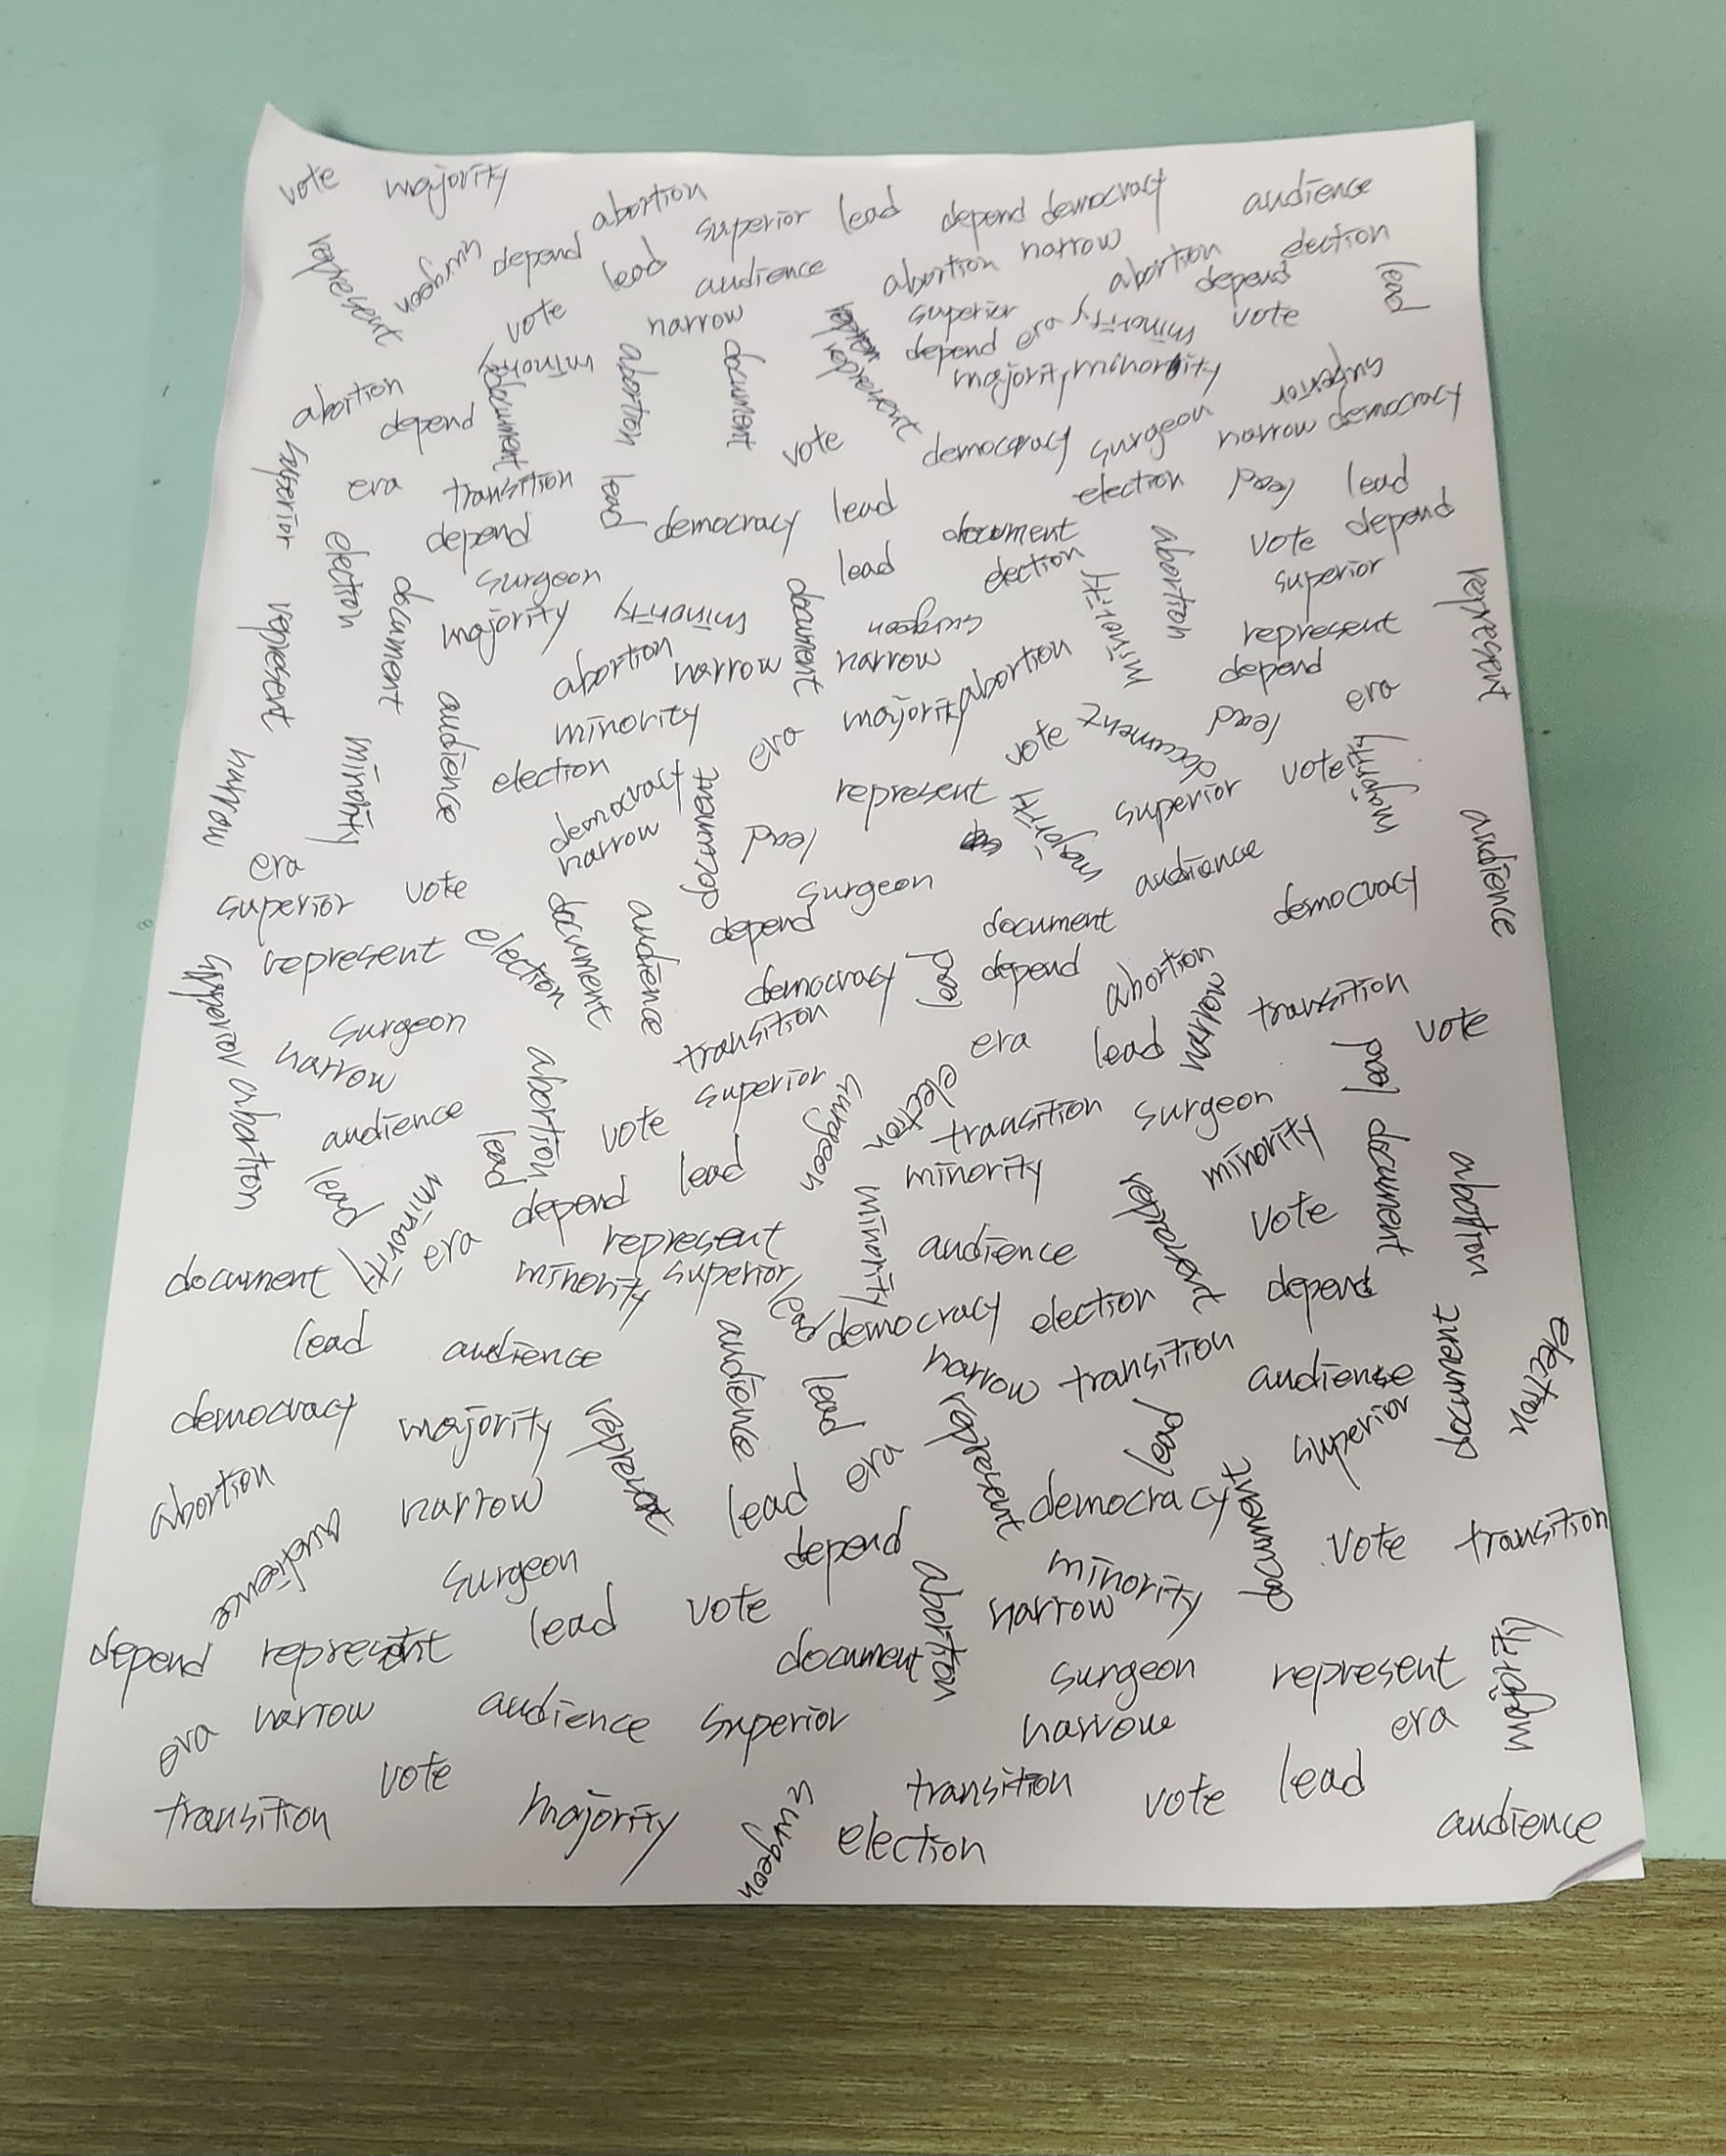 vote majority abortion superior lead depend democracy audience
represent surgeon depend lead audience abortion narrow abortion depend election lead
vote narrow superior era minority vote
minority abortion document represent depend majority minority superior
abortion depend document vote democracy surgeon narrow democracy
superior era transition lead democracy lead election lead lead
election depend document vote depend
surgeon lead election minority abortion superior
represent document majority minority document surgeon represent represent
abortion narrow narrow abortion depend
audience minority era majority vote document lead era
narrow minority election democracy document represent superior vote majority
era narrow lead majority audience audience
superior vote document audience surgeon depend document democracy
represent election democracy lead depend abortion
superior surgeon transition era lead narrow transition vote
narrow abortion superior surgeon election lead
abortion audience lead vote transition surgeon document
lead minority depend lead minority minority represent minority abortion
era represent audience vote
document minority superior lead democracy election depend
lead audience audience narrow transition document election
democracy majority represent lead represent lead audience superior
abortion narrow lead era democracy document
audience surgeon depend minority vote transition
depend represent lead vote abortion narrow
document surgeon represent majority
era narrow audience superior narrow era
transition vote majority surgeon transition vote lead
election audience